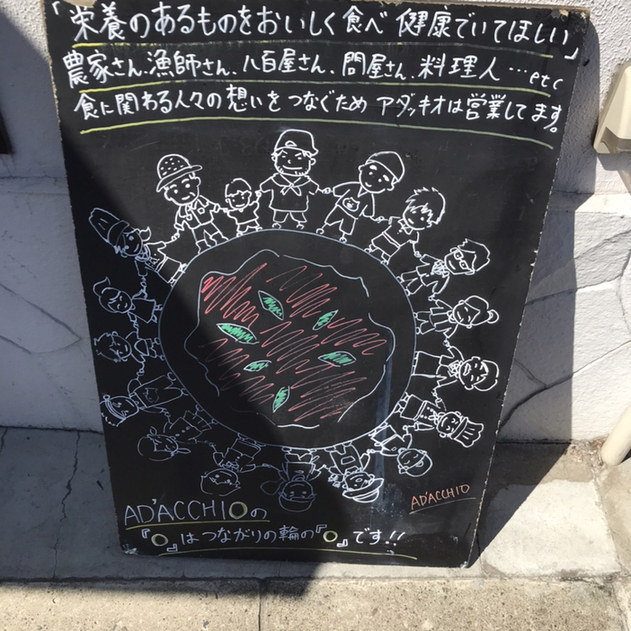 「栄養のあるものをおいしく食べ 健康でいてほしい」
農家さん、漁師さん、八百屋さん、問屋さん、料理人…etc
食に関わる人々の想いをつなぐため アダッキオは営業してます。
ADACCHIO
AD'ACCHIOの
『O』はつながりの輪の『O』です!!